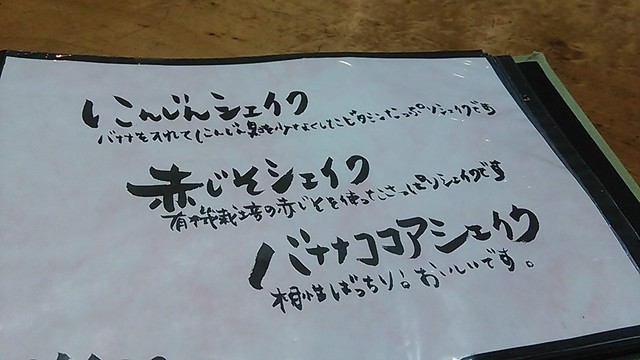 にんじんシェイク
バナナを入れてにんじん臭を少なくしたビタミンたっぷりシェイクです
赤じそシェイク
有機栽培の赤じそを使ったさっぱりシェイクです
バナナココアシェイク
相性ばっちり。おいしいです。